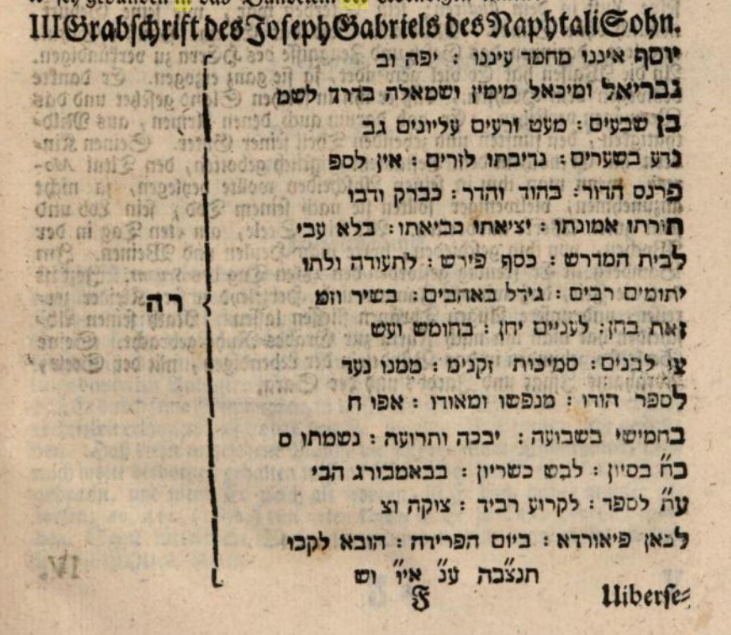 III Grabschrift des Joseph Gabriels des Naphtali Sohn.
יוסף איננו מחמד עיננו : יפה וב
גבריאל ומיכאל מימין ושמאלה בדרך לשמ
בן שבעים : מעט ורעים עליונים גב
נדע בשערים : נדיבתו לזרים : אין לספ
פרנס הדור : בהוד והדר : כברק ודבו
תורתו אמונתו : יציאתו כביאתו : בלא עבי
לבית המדרש : כסף פירש : לתעודה ולתו
יתומים רבים : גידל באהבים : בשיר וזמ
זאת בחן : לעניים יחן : בחומש ועש
צו לבנים : סמיכות זקנים : ממנו נעד
לספר הודו : מנפשו ומאודו : אפו ח
בחמישי בשבועה : יבבה ותרועה : נשמתו ס
כח בסיון : לבש כשריון : בבאמבורג הבי
עה לספד : לקרוע רביד : צוקה וצ
לכאן פיאורדא : ביום הפרידה : הובא לקבו
תנצבה ענ איו וש
רה
F
Uiberse=